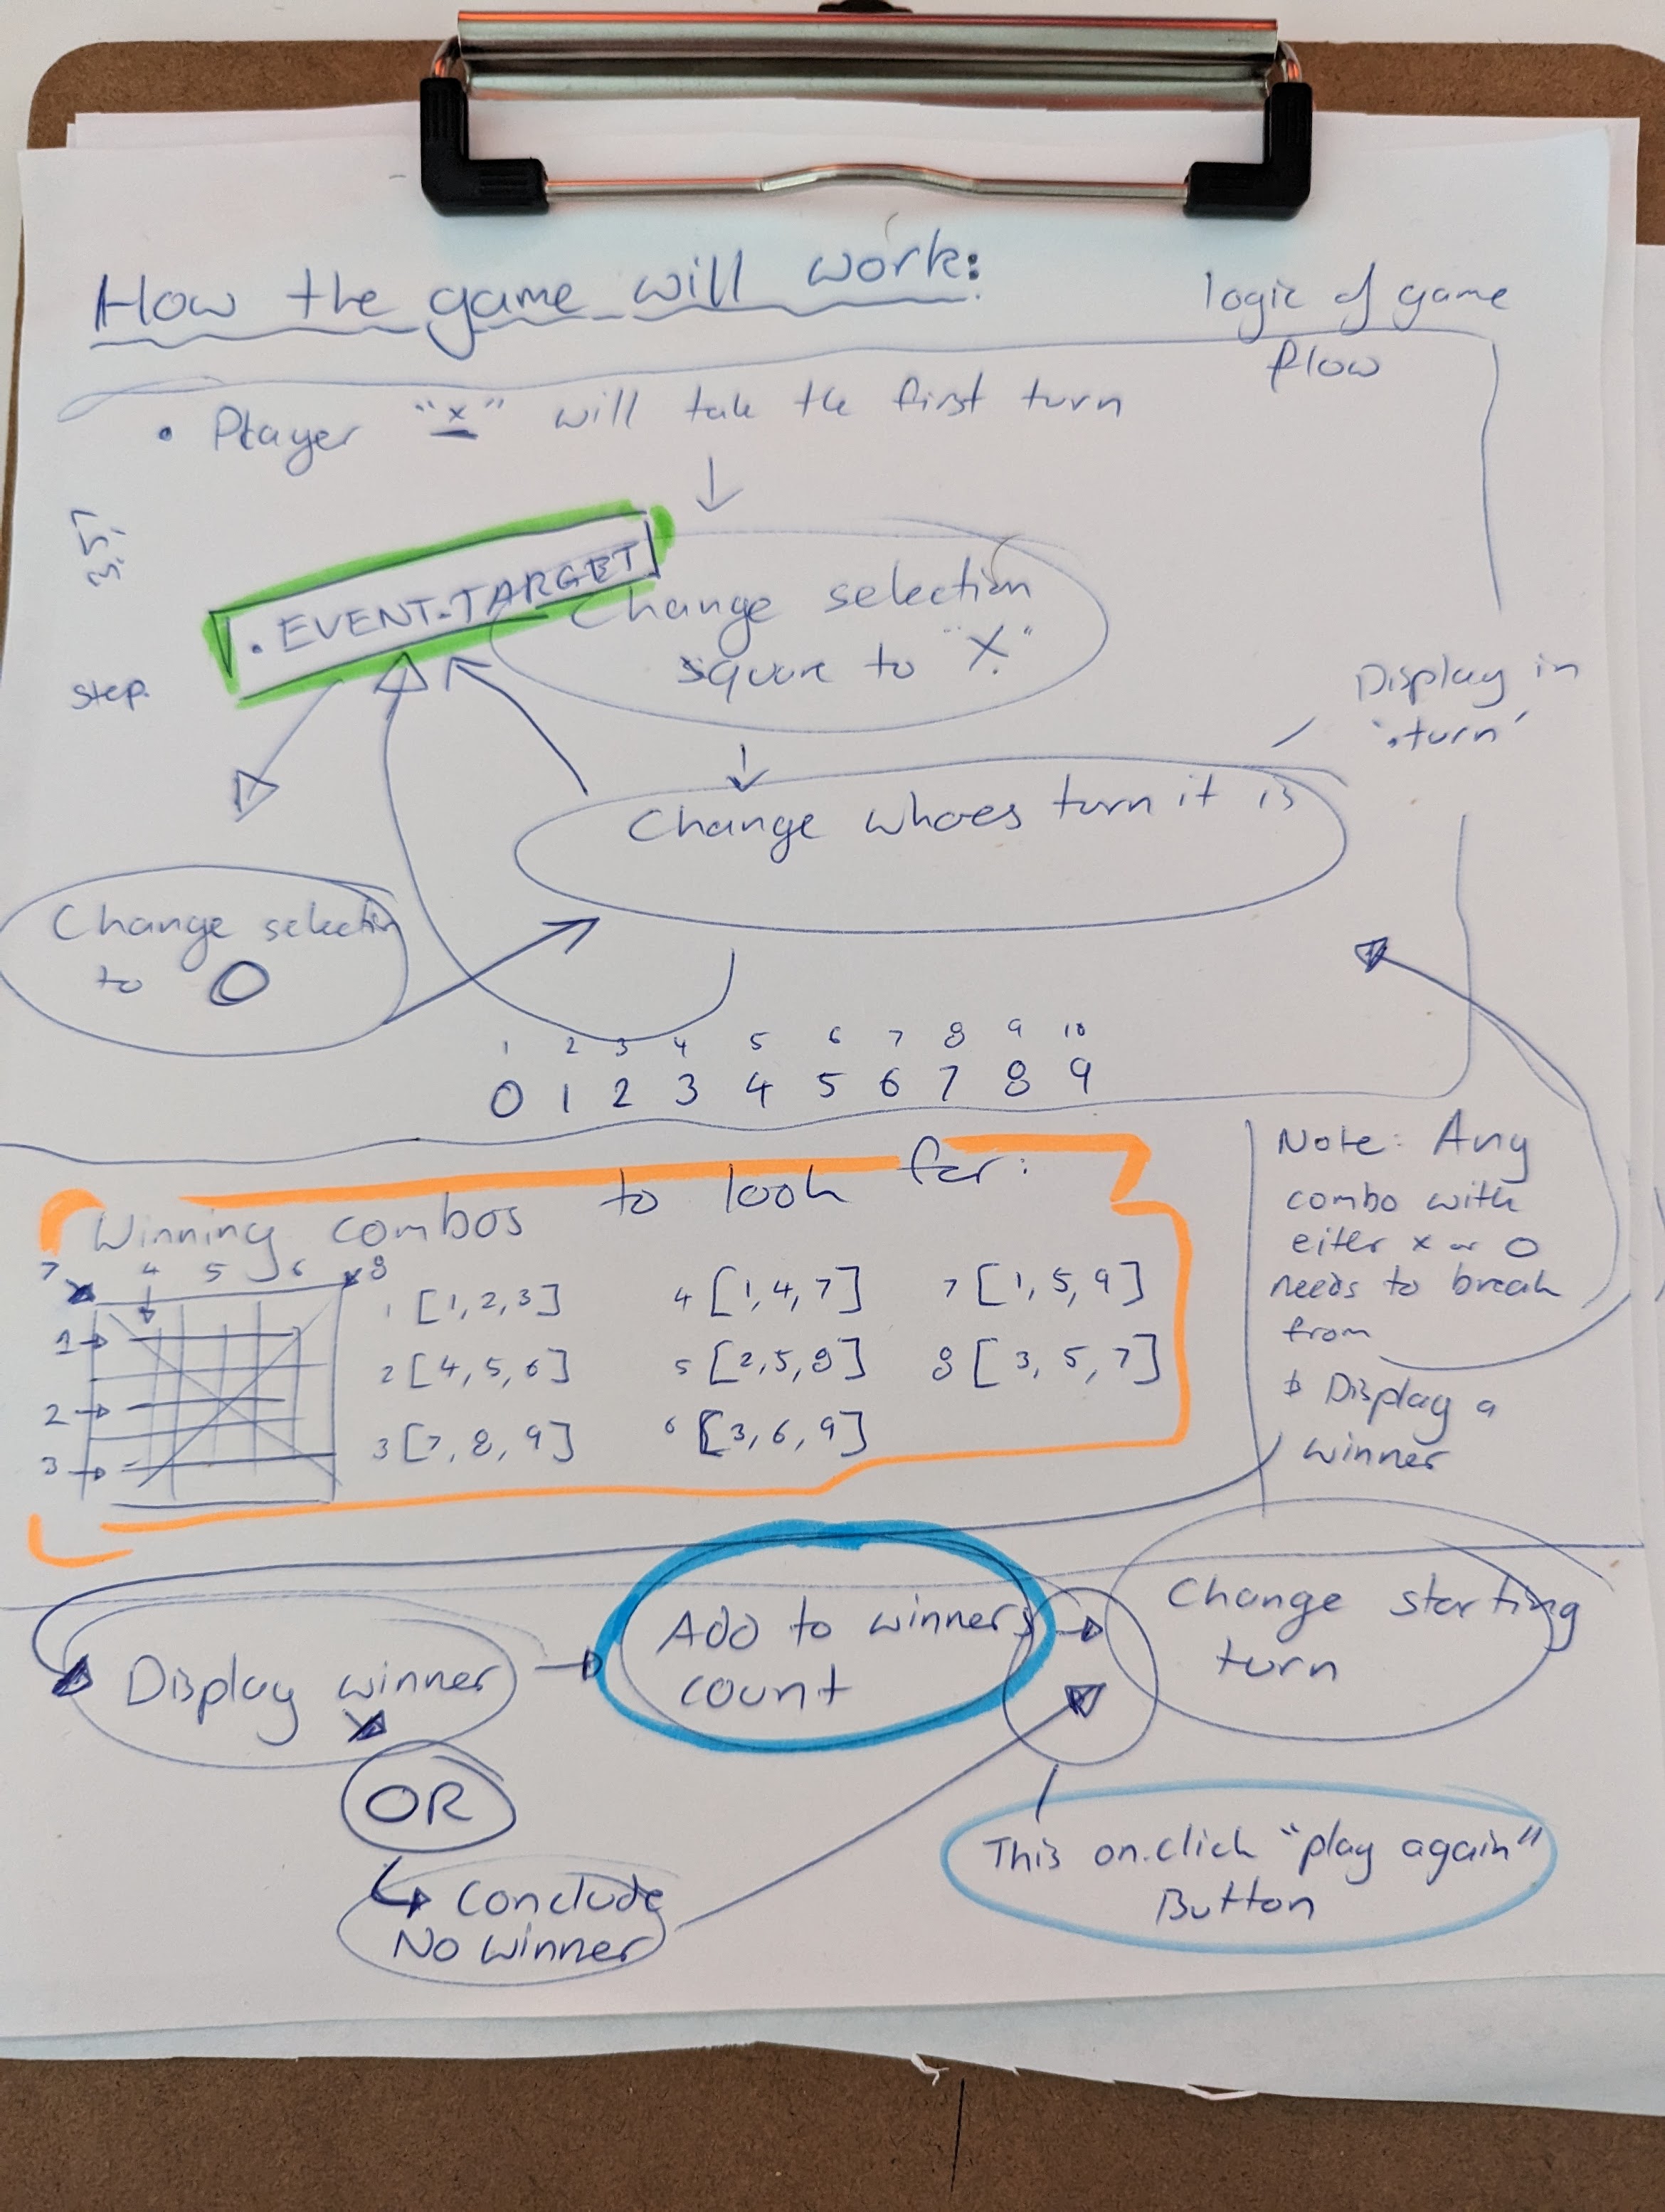 How the game will work:
logic of game
flow
• Player "x" will take the first turn
. EVENT.TARGET
Change selection
square to "X"
step.
Display in
'.turn'
Change whoes turn it is
Change selectin
to O
1 2 3 4 5 6 7 8 9 10
0 1 2 3 4 5 6 7 8 9
Winning combos to look for:
7 4 5 6 8
1 [1, 2, 3] 4 [1, 4, 7] 7 [1, 5, 9]
1
2 [4, 5, 6] 5 [2, 5, 8] 8 [3, 5, 7]
2
3 [7, 8, 9] 6 [3, 6, 9]
3
Note: Any
combo with
eiter x or O
needs to break
from
Display a
winner
Display winner
Add to winners
count
Change starting
turn
OR
Conclude
No winner
This on.click "play again"
Button